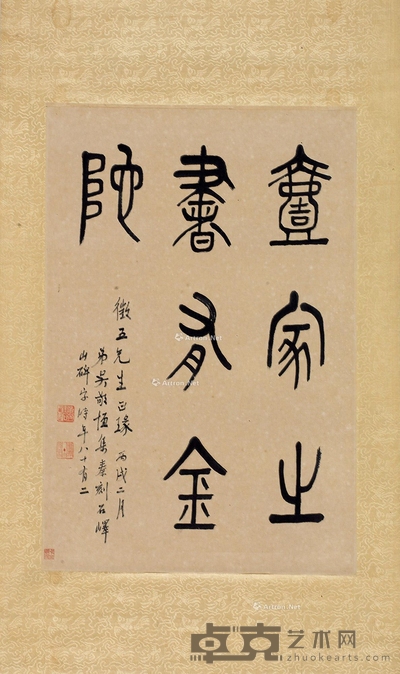 壹家之
書有金
阤
徵五先生正瑑 丙戌二月
弟吳敬恆集秦刻石嶧
山碑字時年八十有二
Artron.Net
Artron.Net
卓克艺术网
zhuokearts.com